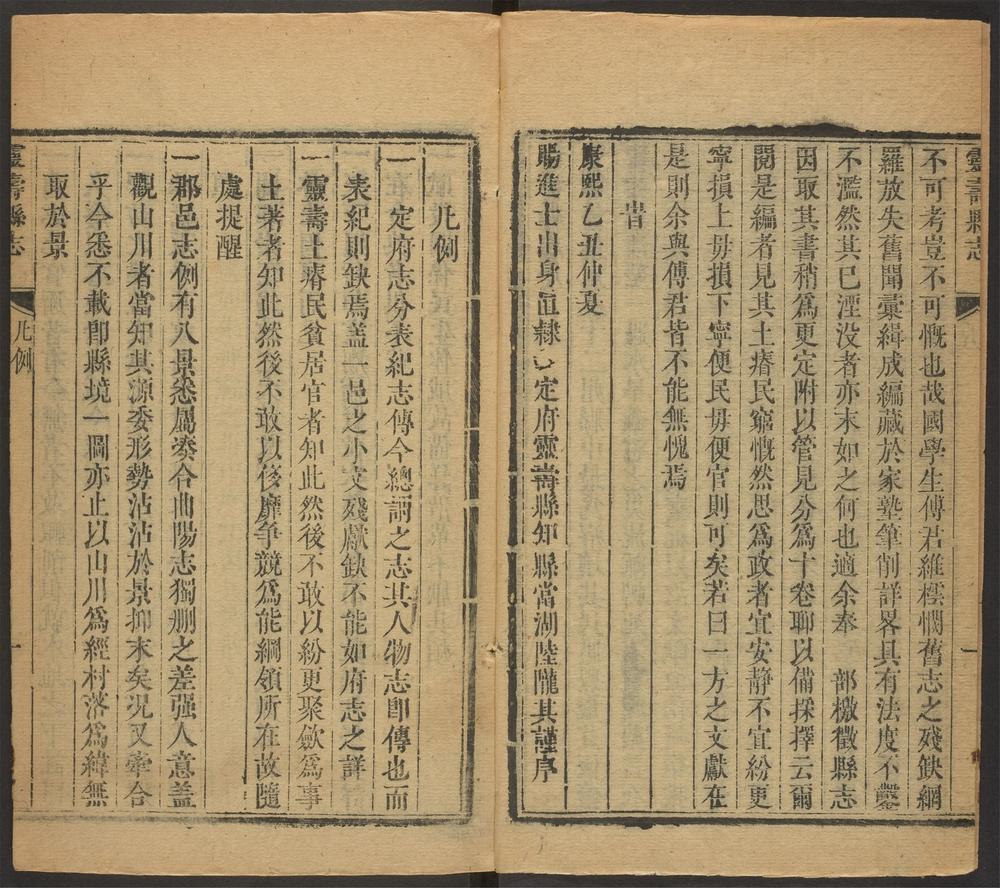 靈壽縣志
不可考豈不可慨也哉國學生傅君維橒憫舊志之殘缺網
羅放失舊聞彙緝成編藏於家塾筆削詳畧具有法度不鑿
不濫然其已湮没者亦末如之何也適余奉 部檄徵縣志
因取其書稍為更定附以管見分為十卷聊以備採擇云爾
閱是編者見其土瘠民窮慨然思爲政者宜安静不宜紛更
寧損上毋損下寧便民毋便官則可矣若曰一方之文獻在
是則余與傅君皆不能無愧焉
旹
康熙乙丑仲夏
賜進士出身直隸 定府靈壽縣知縣當湖陸隴其謹序
一
凡例
一 定府志分表紀志傳今總謂之志其人物志即傳也而
表紀則缺焉盖一邑之小文殘獻缺不能如府志之詳
一靈壽土瘠民貧居官者知此然後不敢以紛更聚歛爲事
土著者知此然後不敢以侈靡争競爲能綱領所在故隨
處提醒
一郡邑志例有八景悉屬凑合曲陽志獨删之差强人意盖
觀山川者當知其源委形勢沾沾於景抑末矣况又牽合
乎今悉不載即縣境一圖亦止以山川爲經村落爲緯無
取於景
靈壽縣志
凡例
一